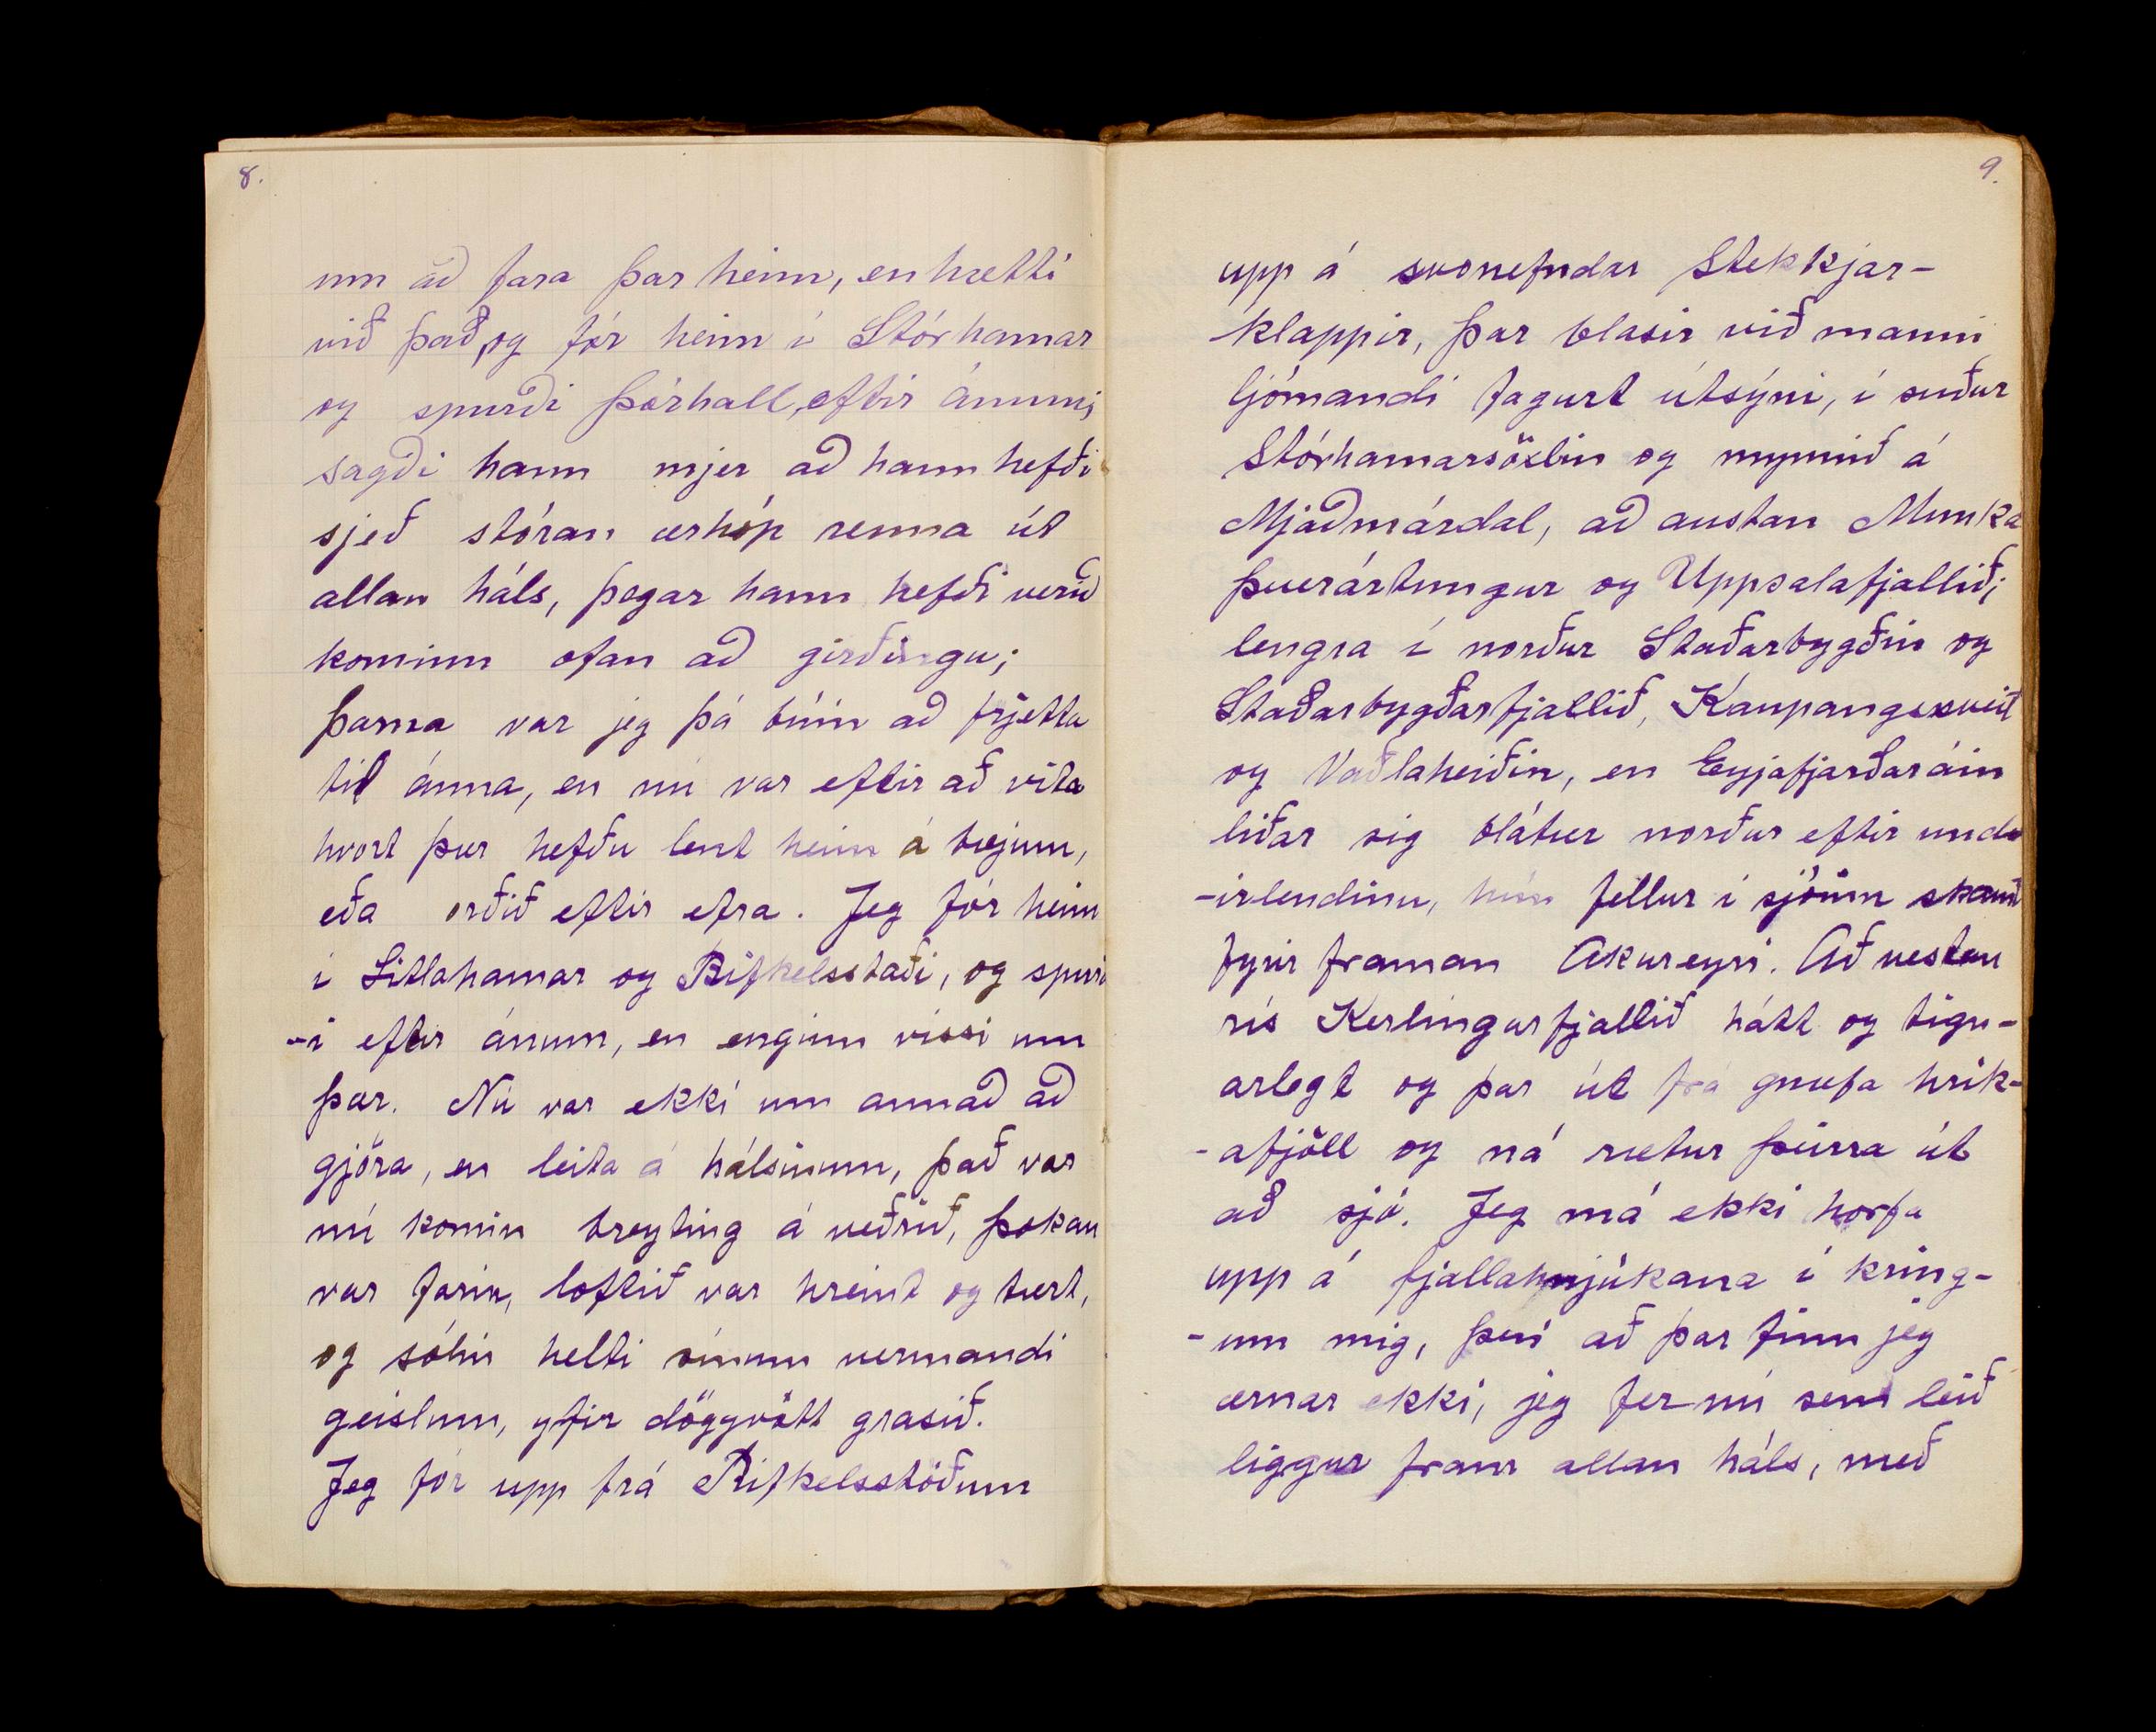 8.
um að fara þar heim, en hætti
við það, og fór heim í Stórhamar
og spurði Þórhall, eftir ánum;
sagði hann mjer að hann hefði
sjeð stóran ærhóp renna út
allan háls, þegar hann hefði verið
kominn ofan að girðingu;
þarna var jeg þá búin að frjetta
til ánna, en nú var eftir að vita
hvort þær hefðu lent heim á bæjum,
eða orðið eftir efra. Jeg fór heim
í Litlahamar og Rifkelsstaði, og spurð
-i eftir ánum, en enginn vissi um
þær. Nú var ekki um annað að
gjöra, en leita á hálsinum, það var
nú komin breyting á veðrið, þokan
var farin, loftið var hreint og tært,
og sólin helti sínum vermandi
geislum, yfir döggvött grasið.
Jeg fór upp frá Rifkelsstöðum
9.
upp á svonefndar Stekkjar-
-klappir, þar blasir við manni
ljómandi fagurt útsýni, í suður
Stórhamarsöxlin og mynnið á
Mjaðmárdal, að austan Munka
þverártungur og Uppsalafjallið;
lengra í norður Staðarbygðin og
Staðarbygðarfjallið, Kaupangssveit
og Vaðlaheiðin, en Eyjafjarðaráin
liðar sig blátær norður eftir und
-irlendinu, hún fellur í sjóinn skamt
fyrir framan Akureyri. Að vestan
rís Kerlingarfjallið hátt og tígu-
arlegt og þar út frá gnæfa hrik-
-afjöll og ná rætur þeirra út
að sjó. Jeg má ekki horfa
upp á fjallahnjúkana í kring-
-um mig, því að þar finn jeg
ærnar ekki, jeg fer nú sem leið
liggur fram allan háls, með